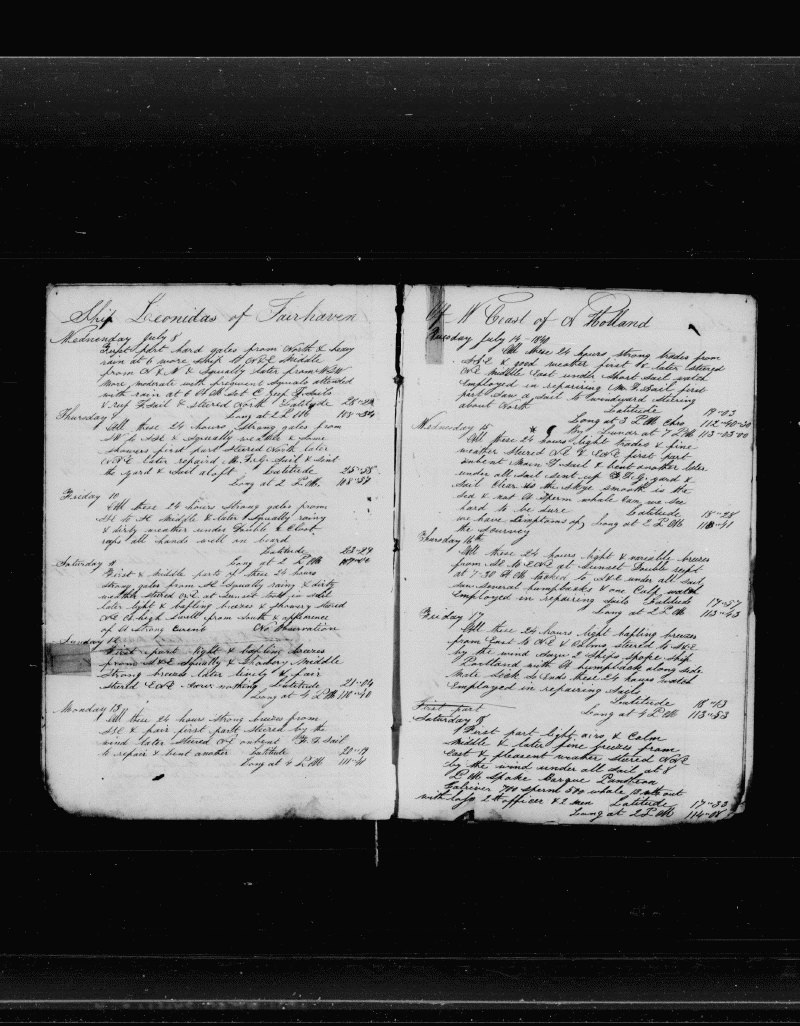 Ship Leonidas of Fairhaven
Wednesday July 8
First part hard gales from North & heavy
rain at 6 wore ship to Middle
from & Squally later from WSW
More moderate with frequent Squals attended
with rain at 6 set F Sails
& F Sail & stered North Latitude 26-22
Thursday Long at 2 P M 108-34
All these 24 hours Strong gales from
SW to SSE & Squally & some
showers first part Stered North later
later repaired M. Sail & Sent
the yard & Sail aloft Latitude 25-58
Long at 2 P M 108-37
Friday 10
All these 24 hours Strong gales from
Middle & later Squally rainy
& dirty weather under Double & Clost
all hands well on bord
Latitude 23-29
Saturday 11 Long at 2 P M
First & Middle parts of these 24 hours
strong gales from Squally rainy & dirty
weather Stered at Sunset took in Sail
later light & bafling brezes & Showery Stered
high Swell from South & apperence
of A Strong Curent No Observation
Sunday 12
First part light & bafling brezes
from SSE Squally & Showery Middle
Strong breeze later lively & fair
Stered ENE nothing Latitude 21-04
Long at 4 P M 110-40
Monday 13
All these 24 hours Strong brezes from
SSE & fair first part Stered by the
wind later Stered unbent F. T. Sail
to repair & bent another Latitude 20-19
Long at 4 P M 111-41
Of W Coast of N Holland
Tuesday July 14 - 1840
All these 24 hours strong trades from
SSE & good weather first & later Stered
Middle East under Short Sail watch
Employed in repairing M. T Sail first
part Saw a Sail to Leeward Stering
about North Latitude 19-03
Long at 3 P M Chro 112-40-30
Wednesday 15 By Lunar at 7 P M 113-03-00
All these 24 hours light trades & fine
weather Stered & ENE first part
unbent Main T Sail & bent another later
under all Sail sent up yard &
Sail Clear is the Skye smooth is the
Sea & not A Sperm whale Can we see
hard to be sure Latitude 18-28
we have Simptoms of Long at 2 P M
the Scurvey
Thursday 16th
All these 24 hours light & variable brezes
from to ENE at Sunset Double reeft
at 7-30 A M tacked to under all Sail
saw Several humpbacks & one Calf watch
Employed in repairing Sails Latitude 17-57
Long at 2 P M 113-43
Friday 17
All these 24 hours light bafling brezes
from East to & Calms Stered to
by the wind Saw 2 Ships Spoke Ship
Portland with A humpback along Side
Male Seek So Ends these 24 hours watch
Employed in repairing Sails
Latitude 18-13
First part Long at 4 P M 113-53
Saturday 18
First part light airs & Calm
Middle & later fine brezes from
East & pleasent weather Stered
by the wind under all Sail at 8
P M Spoke Barque Pantheon
Falriver 700 sperm 500 whale out
with loss 2nd officer & 2 men Latitude 17-33
Long at 2 P M 114-08